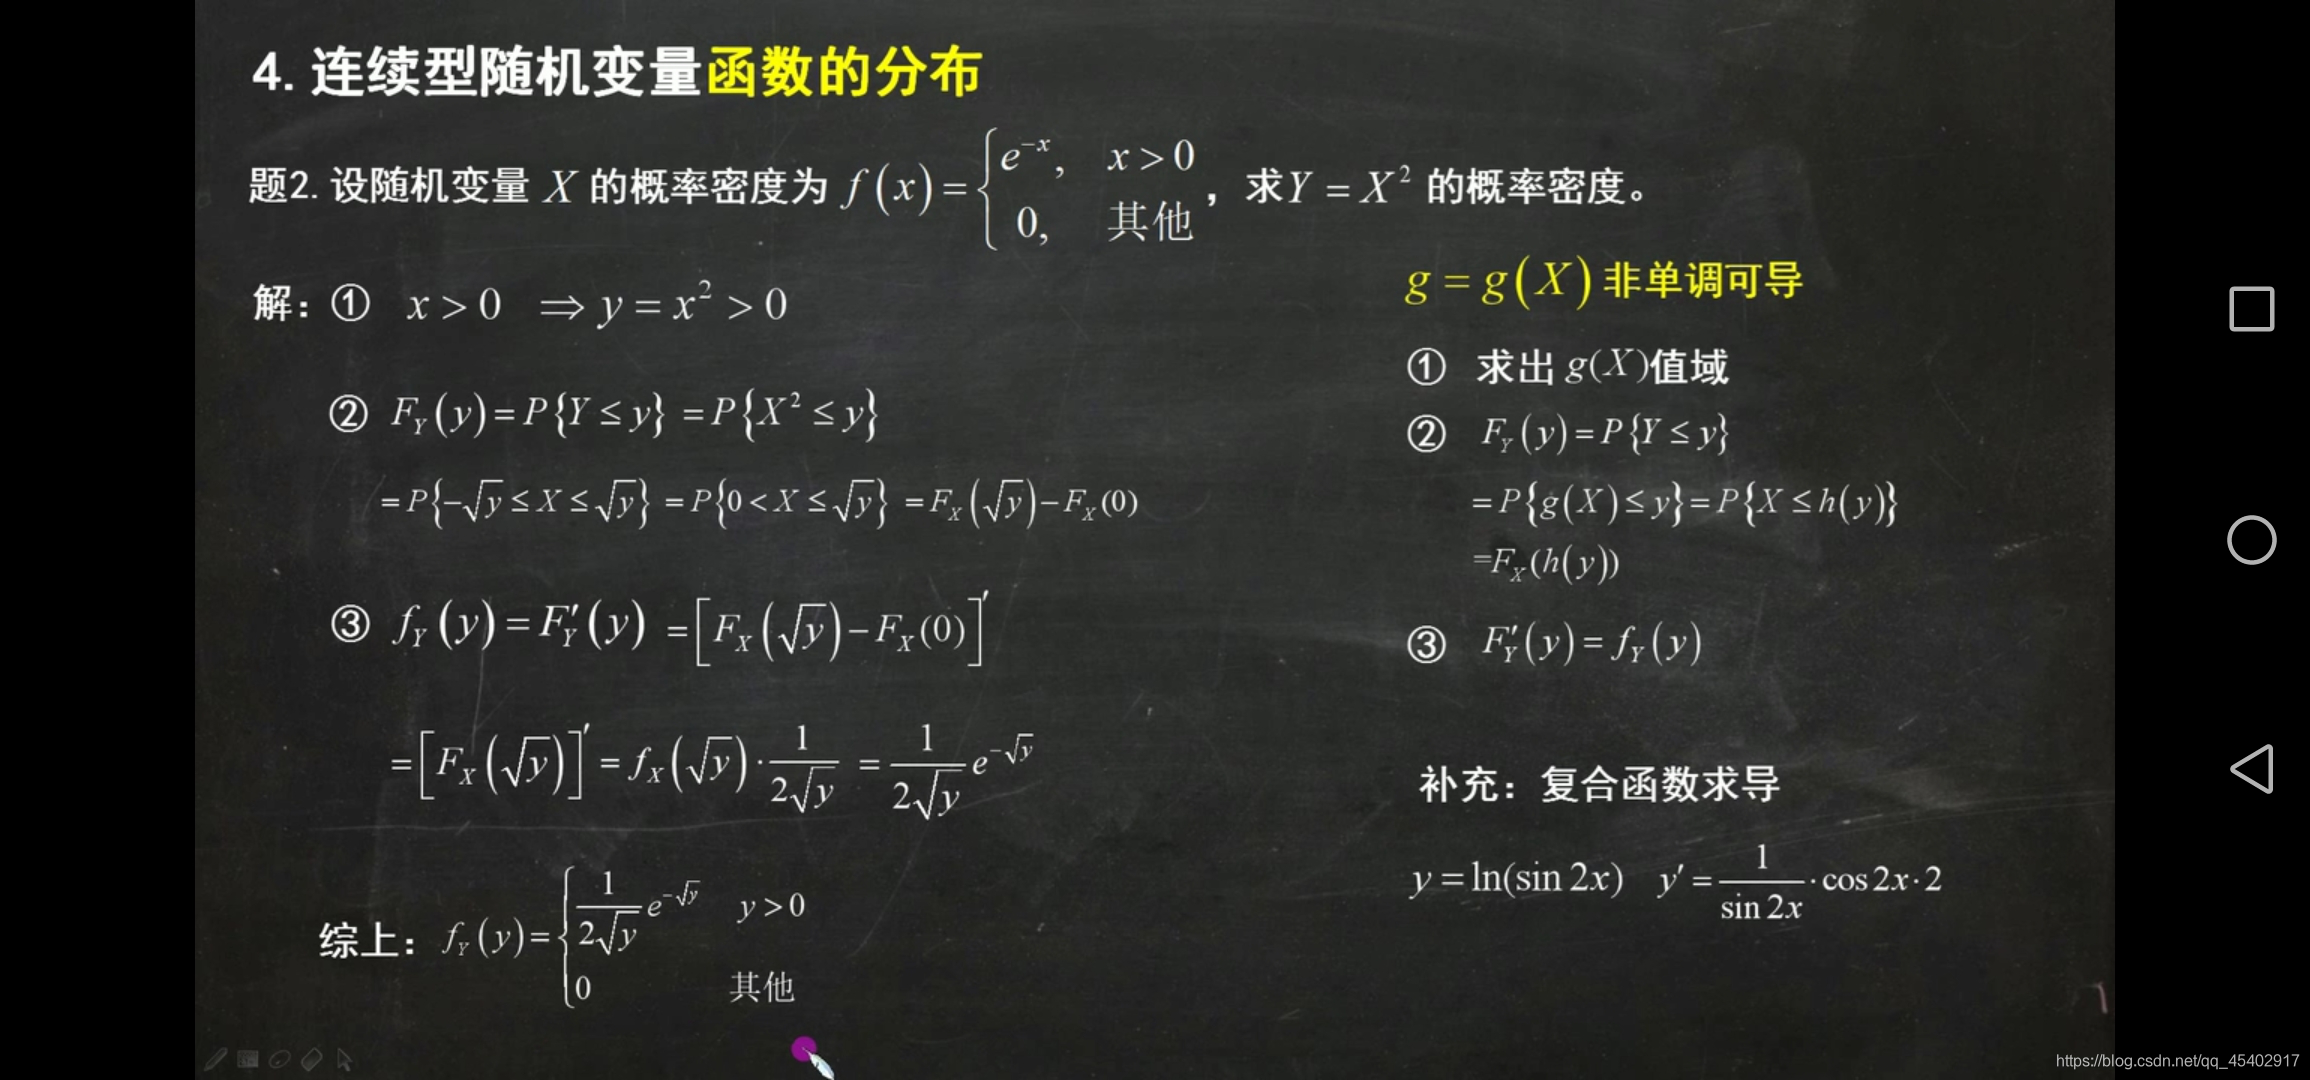 4. 连续型随机变量函数的分布
题2. 设随机变量 X 的概率密度为 f(x) = { e^{-x}, x > 0; 0, 其他 , 求Y = X² 的概率密度。
解: ① x > 0 ⇒ y = x² > 0
② F_Y(y) = P{Y ≤ y} = P{X² ≤ y}
= P{-√y ≤ X ≤ √y} = P{0 < X ≤ √y} = F_X(√y) - F_X(0)
③ f_Y(y) = F′_Y(y) = [F_X(√y) - F_X(0)]′
= [F_X(√y)]′ = f_X(√y) · 1/(2√y) = 1/(2√y) e^{-√y}
综上: f_Y(y) = { 1/(2√y) e^{-√y} y > 0; 0 其他
g = g(X) 非单调可导
① 求出 g(X)值域
② F_Y(y) = P{Y ≤ y}
= P{g(X) ≤ y} = P{X ≤ h(y)}
=F_X(h(y))
③ F′_Y(y) = f_Y(y)
补充: 复合函数求导
y = ln(sin 2x) y′ = 1/(sin 2x) · cos 2x · 2
https://blog.csdn.net/qq_45402917